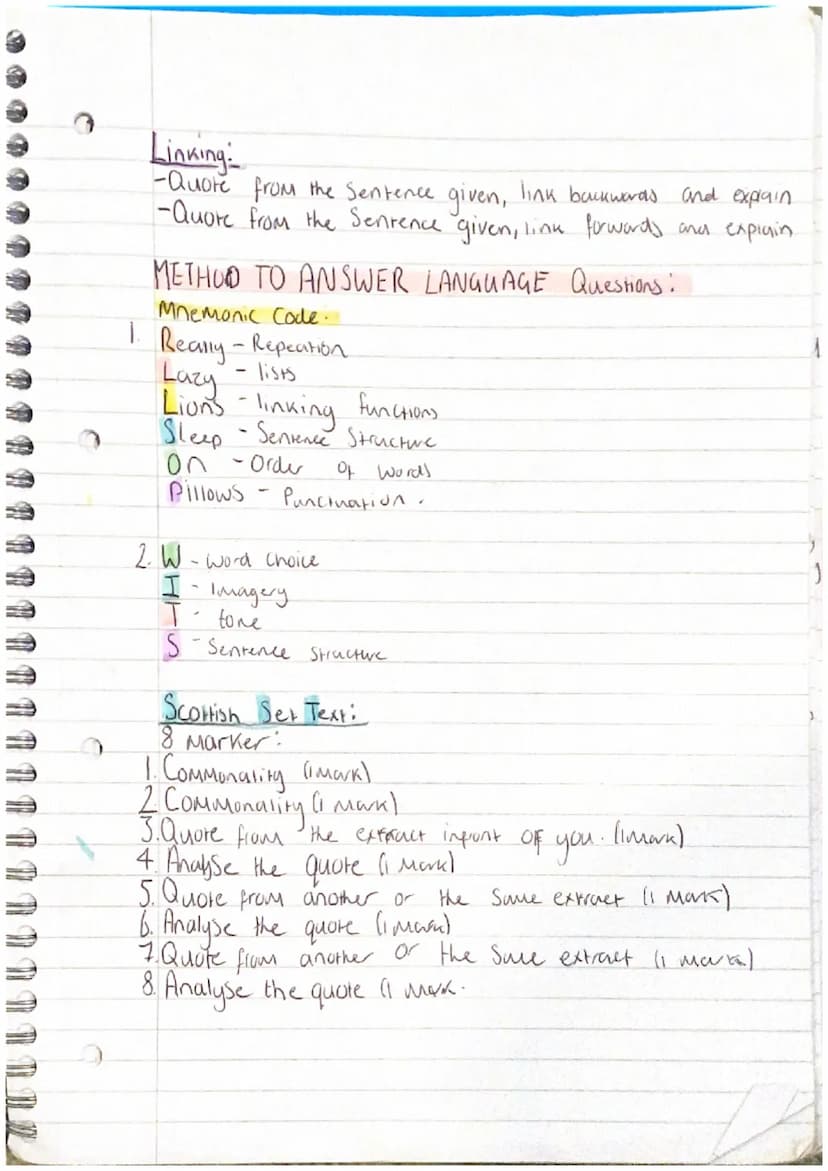 Linking:
-Quote from the sentence given, link backwards and explain
-Quote from the sentence given, link forwards and explain
METHOD TO ANSWER LANGUAGE Questions:
Mnemonic Code.
1. Really - Repeation
Lazy - lists
Lions - linking functions
Sleep - Sentence Structure
On - Order of words
Pillows - Punctuation.
2. W - word choice
I - Imagery
T - tone
S - Sentence structure
Scottish Set Text:
8 Marker:
1. Commonality (1 Mark)
2. Commonality (1 Mark)
3. Quote from the extract infront of you. (1 Mark)
4. Analyse the quote (1 Mark)
5. Quote from another or the same extract (1 Mark)
6. Analyse the quote (1 Mark)
7. Quote from another or the same extract (1 mark)
8. Analyse the quote (1 mark.